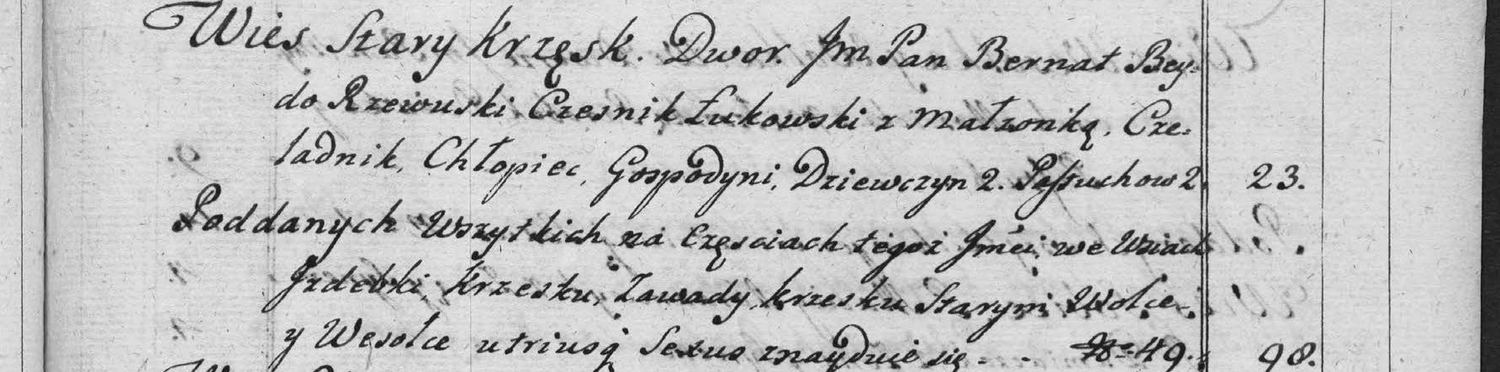 Wieś Stary Krzęsk. Dwor. Jm Pan Bernat Bey-
do Rzewuski Czesnik Łukowski z Małżonką, Cze-
ladnik, Chłopiec, Gospodyni, Dziewczyn 2. Pastuchow 2. 23.
Poddanych Wszytkich na Częsciach tegoż Jmći we Wsiach
Jzdebki, Krzesku, Zawady, Krzesku Starym Wolce
y Wesołce utriusq Sexus znayduie się - . 49. 98.